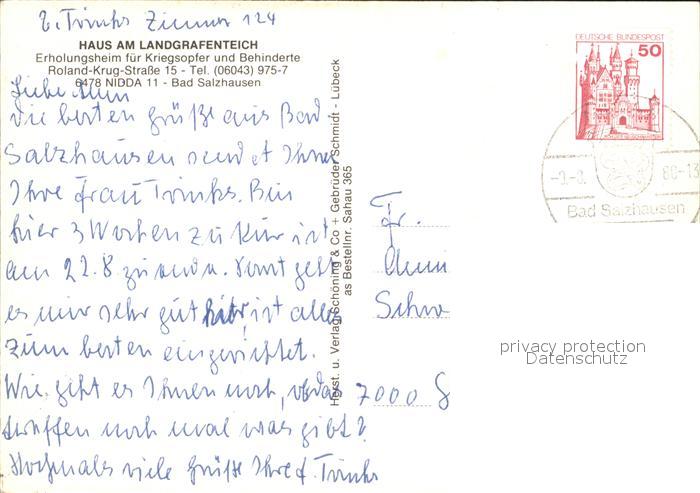 E. Trinks Zimmer 124
HAUS AM LANDGRAFENTEICH
Erholungsheim für Kriegsopfer und Behinderte
Roland-Krug-Straße 15 - Tel. (06043) 975-7
6478 NIDDA 11 - Bad Salzhausen
Liebe
die besten Grüße aus Bad
Salzhausen sendet Ihnen
Ihre Frau Trinks. Bin
hier 3 Wochen zu Kur ist
am 22.8 zu Sonst geht
es mir sehr gut hier, ist alles
zum besten eingerichtet.
Wie geht es Ihnen noch,
noch mal was gibt?
Nochmals viele Grüße Ihre F. Trinks
Herst. u. Verlag Schöning & Co + Gebrüder Schmidt - Lübeck
as Bestellnr. Sahau 365
DEUTSCHE BUNDESPOST
50
80-13
Bad Salzhausen
Fr.
Anni
Schw
7000 S
privacy protection
Datenschutz